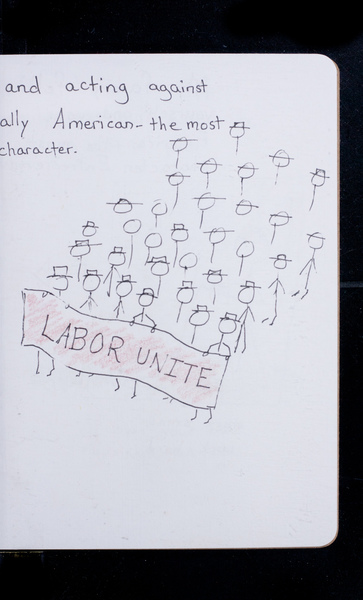 and acting against
ally American - the most
character.
LABOR UNITE